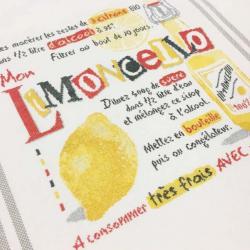 macérer les zestes de 8 citrons
dans 1/2 litre d'alcool à 95°
Filtrer au bout de 10 jours.
Mon
LIMONCELLO
Diluez 500g de sucre
dans 1/2 litre d'eau
et mélangez ce sirop
à l'alcool.
Mettez en bouteille
puis au congélateur.
A consommer très frais AVEC